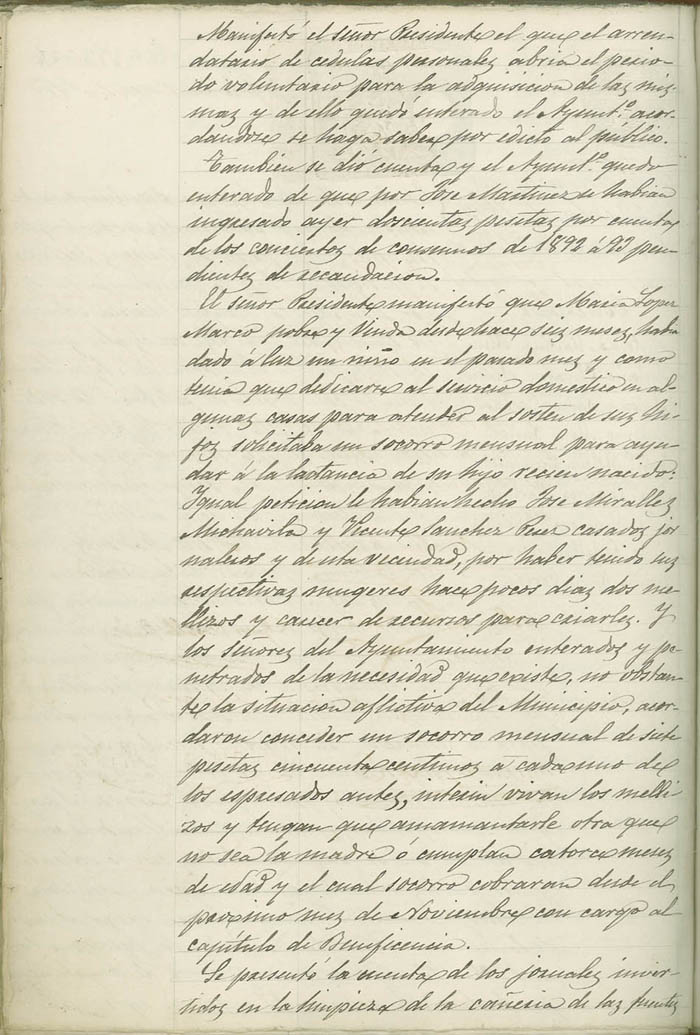 Manifestó el señor Presidente el que el arren-
datario de cedulas personales abria el perio-
do voluntario para la adquisicion de las mis-
mas y de ello quedó enterado el Ayuntº. acor-
dandose se haga saber por edicto al público.
Tambien se dió cuenta y el Ayuntº. quedo
enterado de que por Jose Martinez se habian
ingresado ayer doscientas pesetas por cuenta
de los conciertos de consumos de 1892 á 93 pen-
dientes de recaudacion.
El señor Presidente manifestó que Maria Lopez
Marco pobre y Viuda desde hace seis meses, habia
dado á luz un niño en el pasado mes y como
tenia que dedicarse al servicio domestico en al-
gunas casas para atender al sosten de sus hi-
jos solicitaba un socorro mensual para ayu-
dar á la lactancia de su hijo recien nacido.
Igual peticion le habian hecho Jose Miralles
Michavila y Vicente Sanchez Perez casados jor-
naleros y de esta vecindad, por haber tenido sus
respectivas mugeres hace pocos dias dos me-
llizos y carecer de recursos para criarles. Y
los señores del Ayuntamiento enterados y pe-
netrados de la necesidad que existe, no obstan-
te la situacion aflictiva del Municipio, acor-
daron conceder un socorro mensual de siete
pesetas cincuenta centimos a cada uno de
los espresados antes, interin vivan los melli-
zos y tengan que amamantarle otra que
no sea la madre ó cumplan catorce meses
de edad y el cual socorro cobraran desde el
proximo mes de Noviembre con cargo al
capítulo de Beneficencia.
Se presentó la cuenta de los jornales inver-
tidos en la limpieza de la cañeria de las fuentes